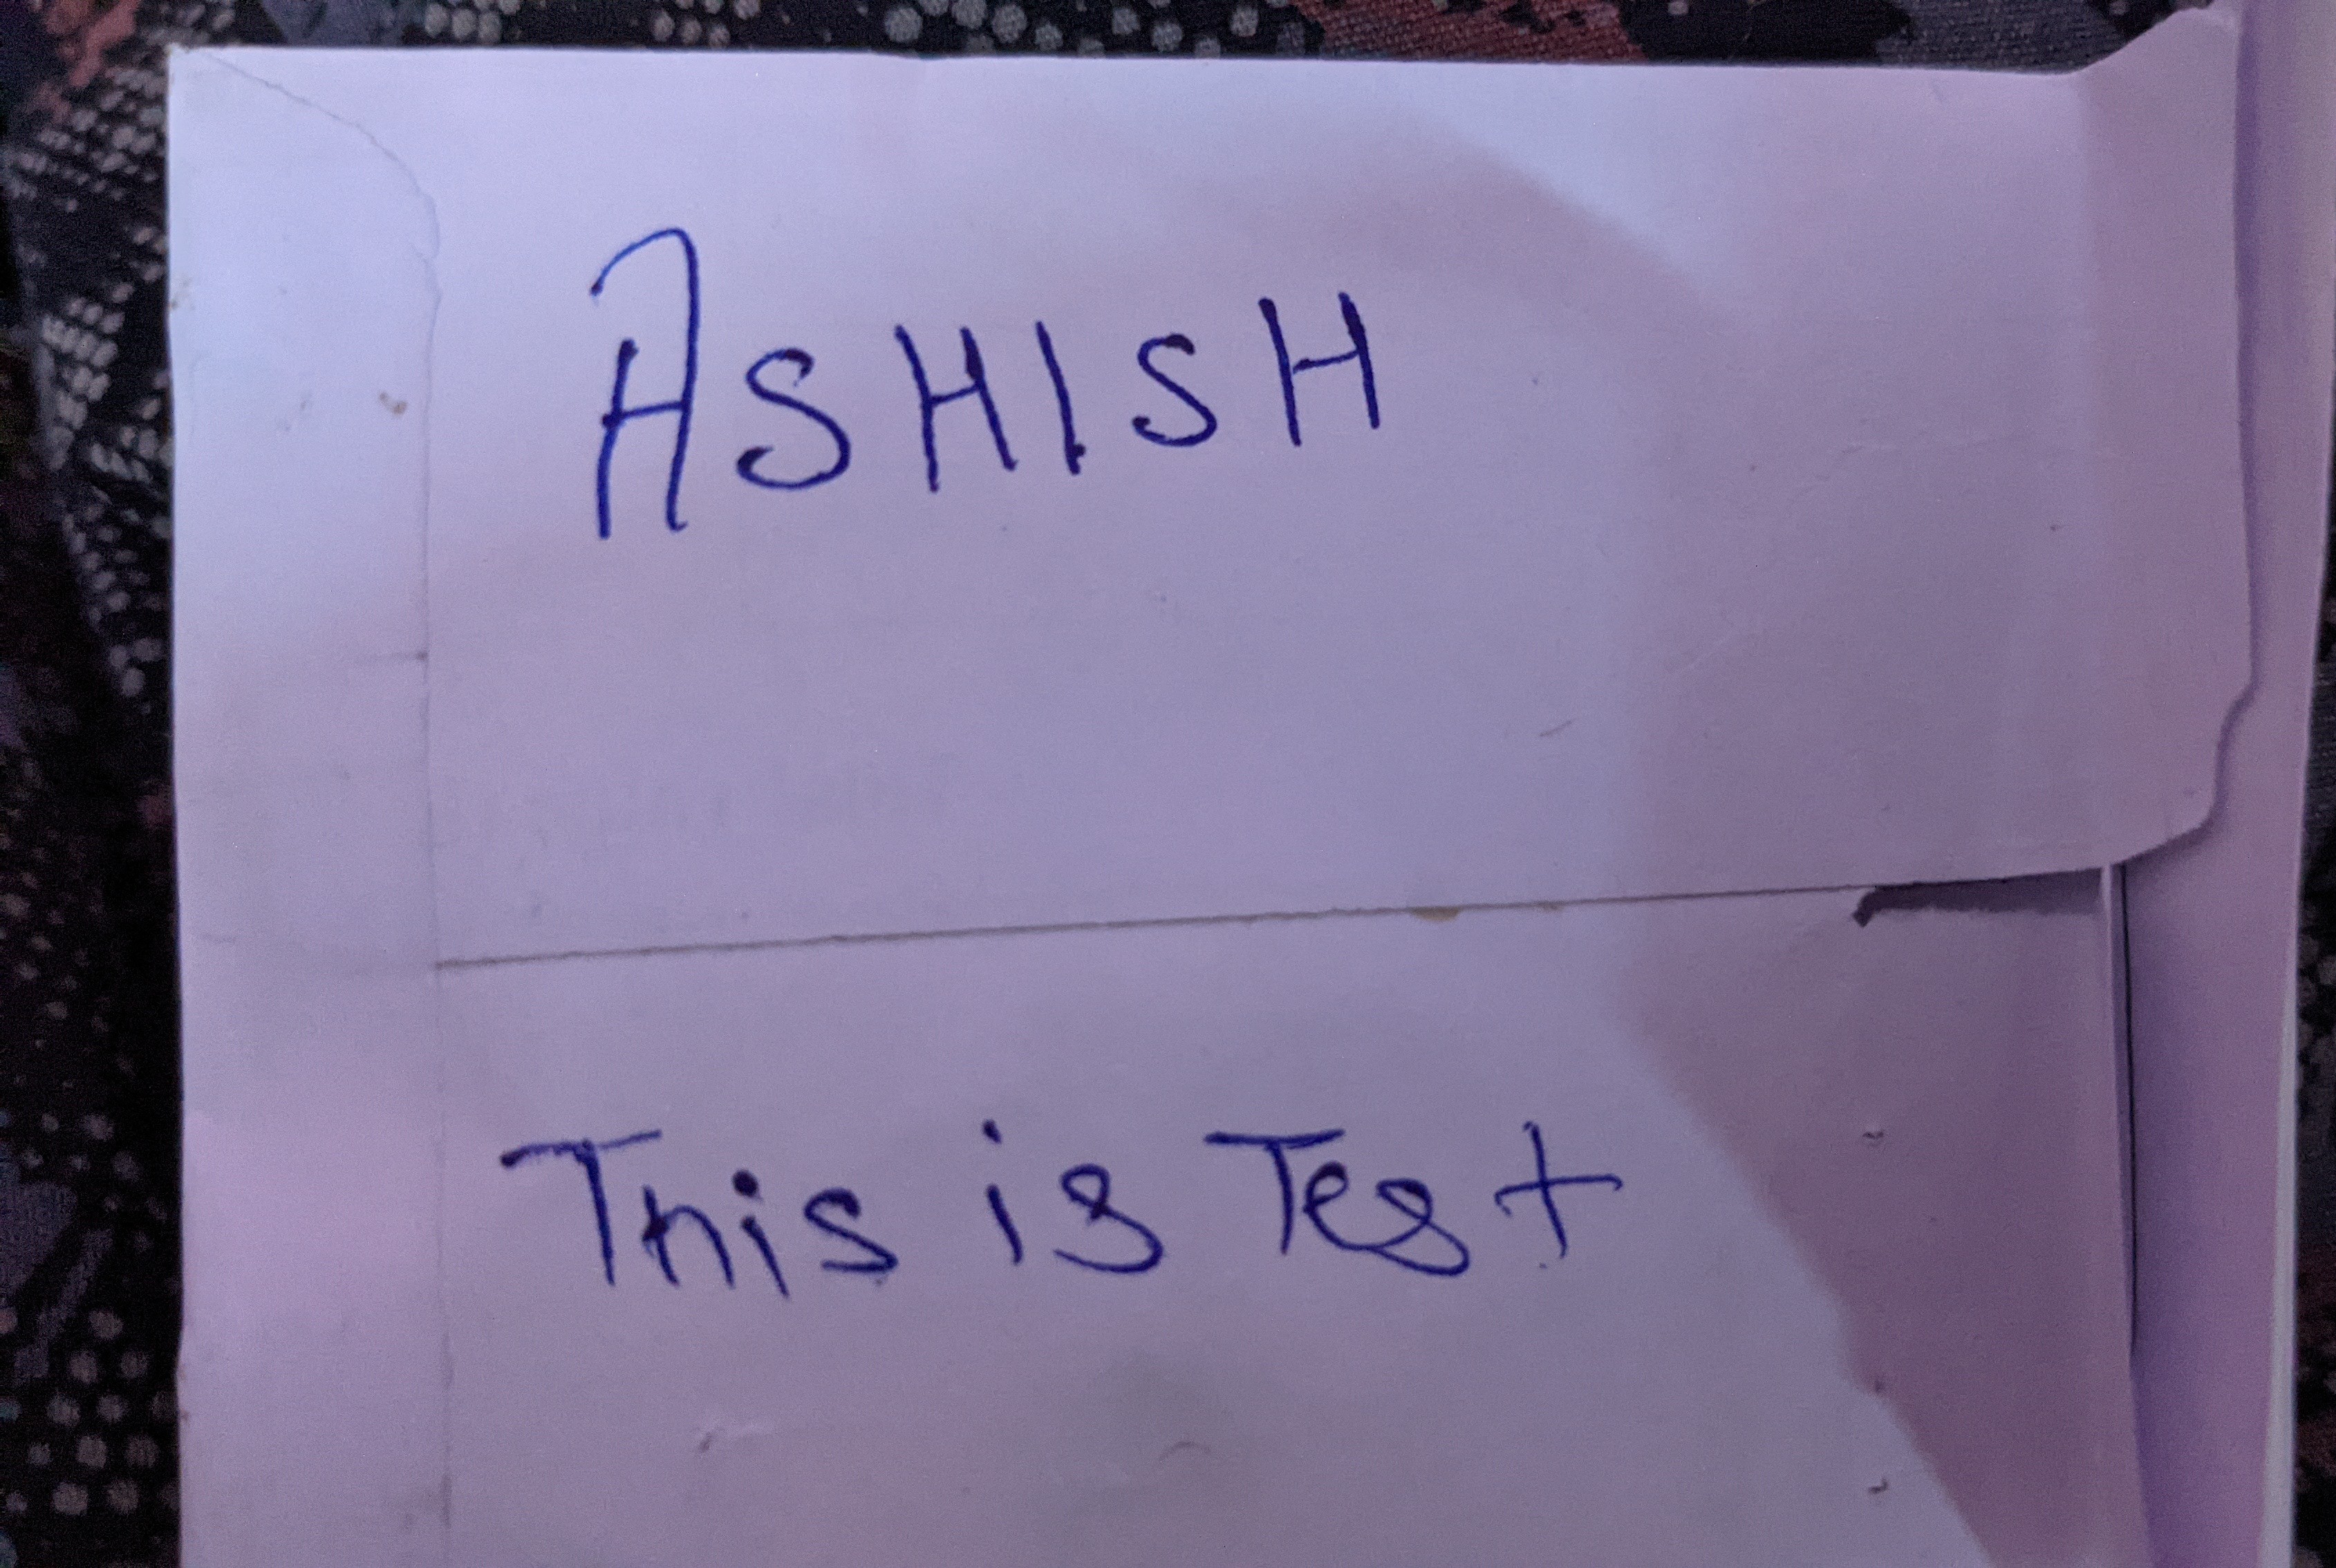 ASHISH
This is Test